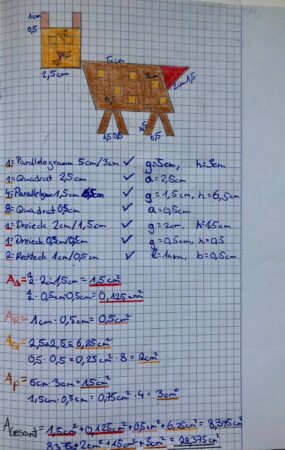 1cm
0,5
5cm
0,5
0,5
3cm
2cm
1,5
2,5cm
1,5
0,5
1,5
0,5
1= Parallelogramm 5cm/3cm ✓ g=5cm, h=3cm
1= Quadrat 2,5cm ✓ a=2,5cm
4= Parallelogr. 1,5cm 0,5cm ✓ g=1,5cm, h=0,5cm
8= Quadrat 0,5cm ✓ a=0,5cm
1= Dreieck 2cm/1,5cm ✓ g=2cm, h=1,5cm
1= Dreieck 0,5cm/0,5cm ✓ g=0,5cm, h=0,5
2= Rechteck 1cm/0,5cm ✓ l=1cm, b=0,5cm
A△= ½·2·1,5cm=1,5cm²
½·0,5cm·0,5cm=0,125cm²
AR= 1cm·0,5cm=0,5cm²
AQ= 2,5·2,5=6,25cm²
0,5·0,5=0,25cm²·8=2cm²
AP= 5cm·3cm=15cm²
1,5cm·0,5cm=0,75cm²·4=3cm²
AGesamt= 1,5cm²+0,125cm²+0,5cm²+6,25cm²=8,375cm²
8,375+2cm²+15cm²+3cm²=28,375cm²